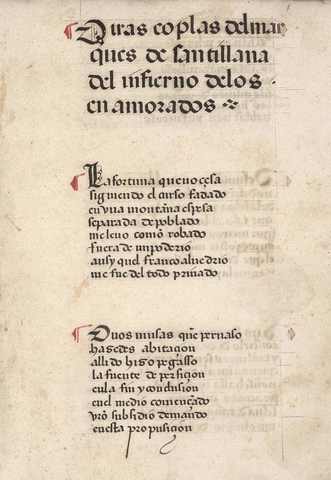 Otras coplas del mar
ques de santillana
del infierno delos
enamorados
La fortuna que no çesa
siguiendo el curso fadado
en vna montaña espesa
separada de poblado
me leuo como robado
fuera de mi poderio
ansy quel franco aluedrio
me fue del todo priuado
O vos musas que pernaso
hazedes abitaçion
alli do hizo pegasso
la fuente de perfiçion
en la fin y conclusion
en el medio començado
vrō subsidio demando
en esta proposiçion